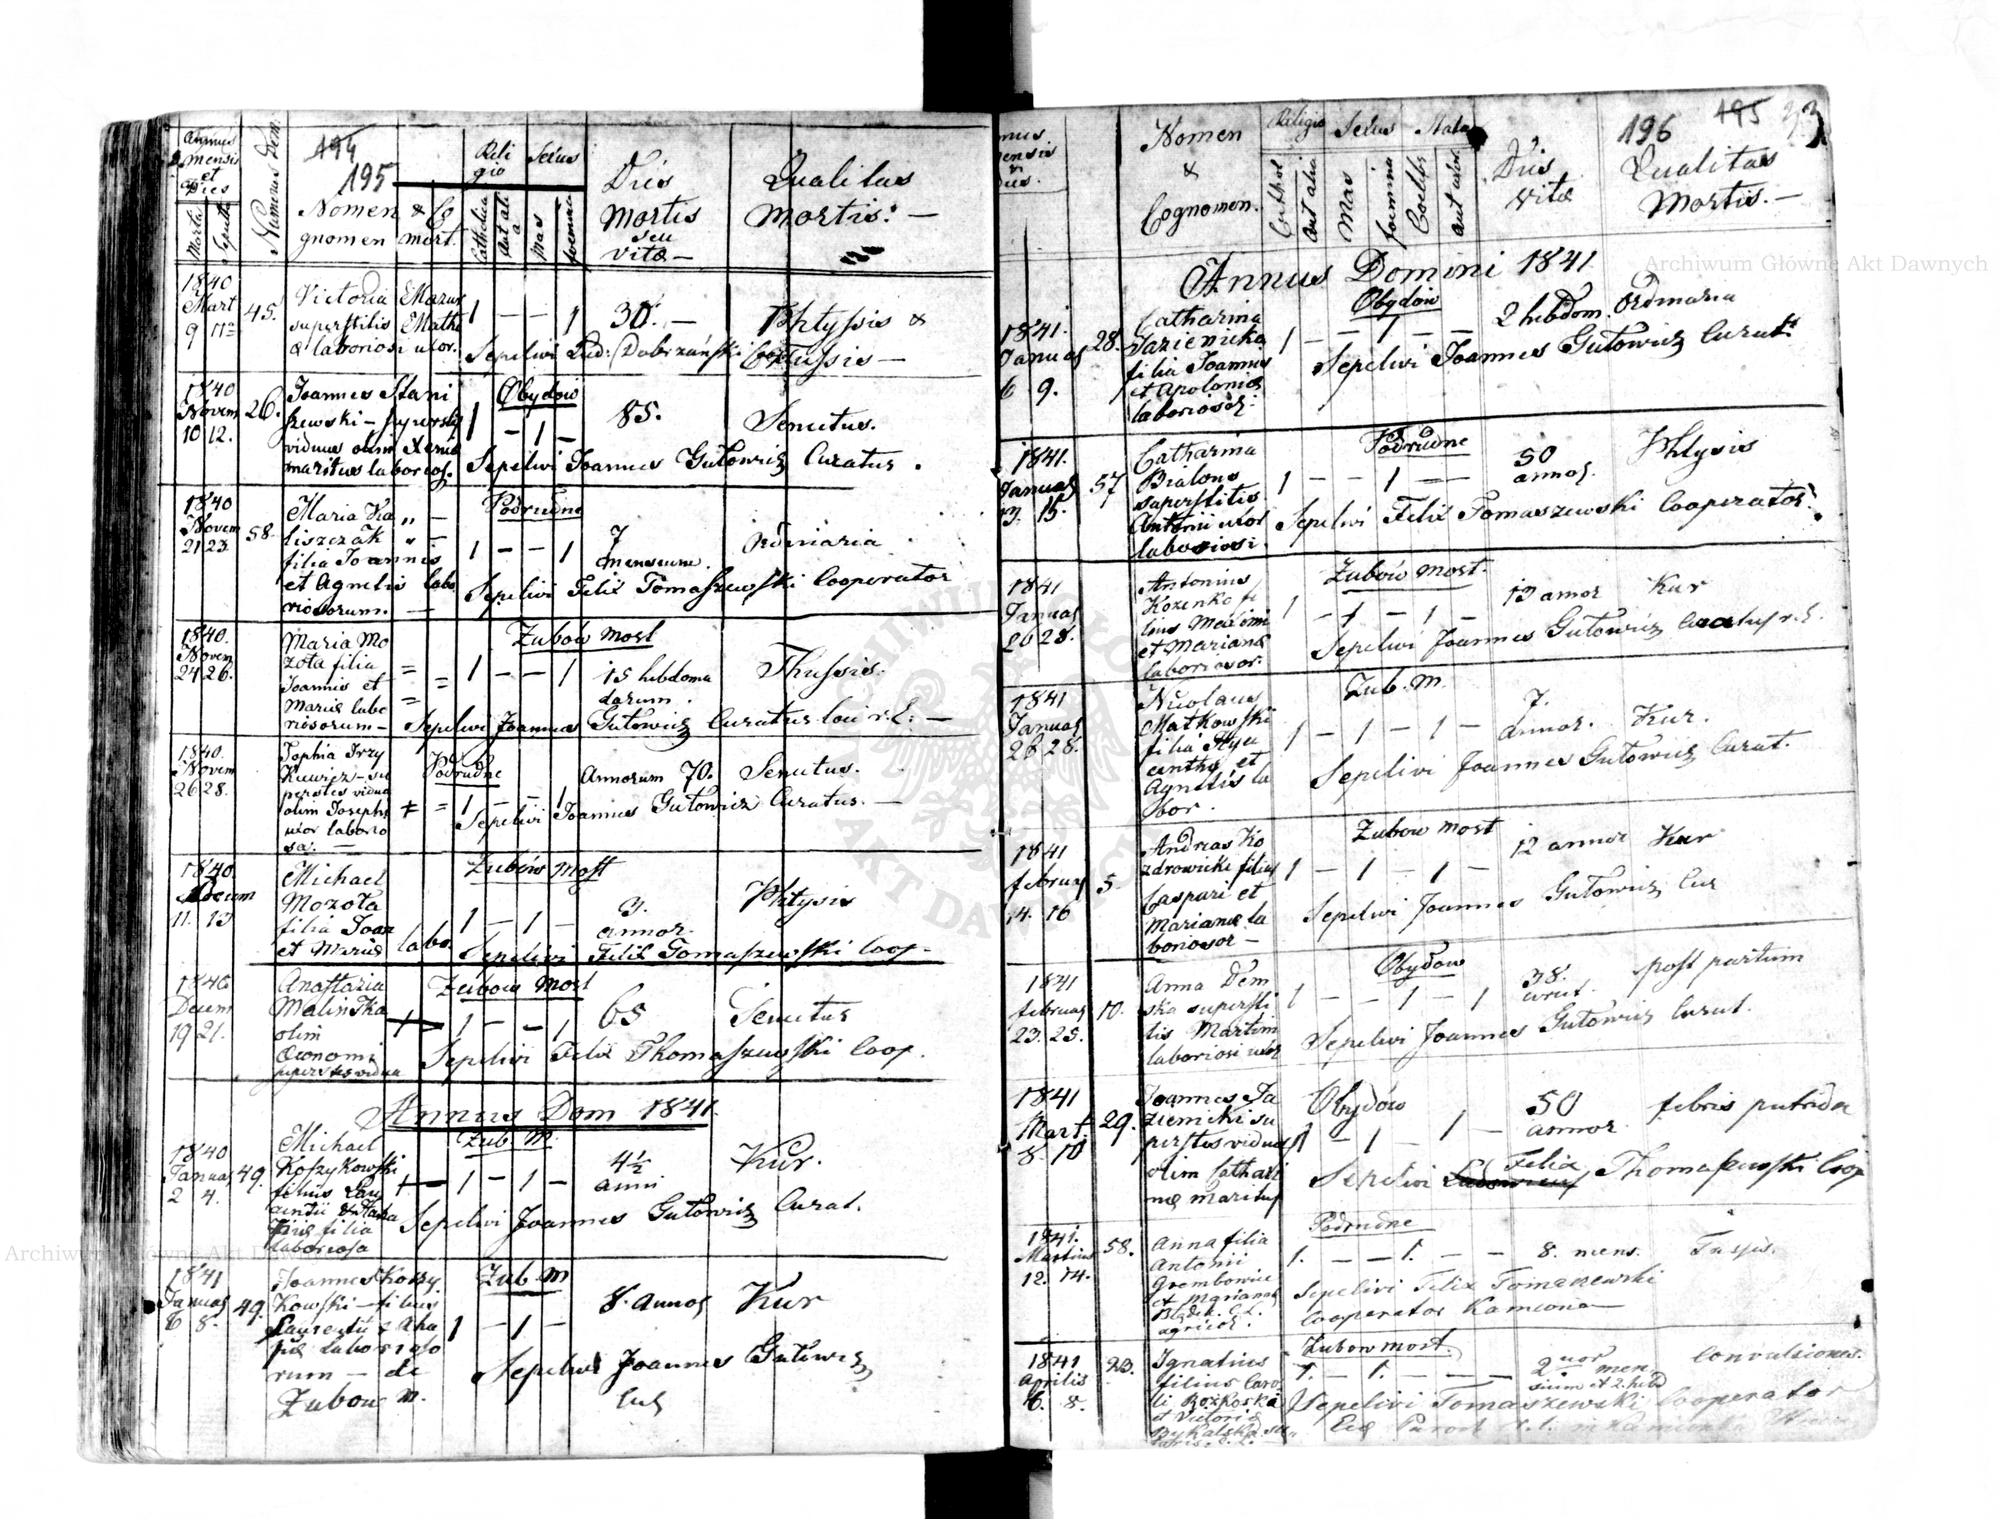 Annus
mensis
et
Dies
Mortis
Sepult
Numerus Dom.
194
195
Nomen & Co
gnomen mort.
Reli
gio
Catholica
Aut ali
a
Sexus
Mas
Foemina
Dies
Mortis
seu
vitæ —
Qualitas
Mortis. —
1840
Mart
9 11
45.
Victoria Mazur
superstitis Mathe
laboriosi uxor.
1 — — 1
30. —
Phtyssis &
Sepelivi Lud: Dobrzański
1840
Novem
10 12.
26.
Joannes Stani
szewski — superstes
viduus olim Xeniæ
maritus laborios.
Obydów
1 — 1 —
85.
Senectus.
Sepelivi Joannes Gutowicz Curatus.
1840
Novem
21 23.
58.
Maria Ka
liszczak
filia Joannis
et Agnetis labo
riosorum. —
Podrudne
1 — — 1
7
mensium.
Ordinaria
Sepelivi Felix Tomaszewski Cooperator
1840.
Novem
24 26.
Maria Mo
zota filia
Joannis et
Mariæ labo
riosorum —
Zubów most
1 — — 1
15 hebdoma
darum.
Thussis.
Sepelivi Joannes Gutowicz Curatus loci r. l: —
1840.
Novem
26 28.
Sophia Krzy
su
perstes vidua
olim Josephi
uxor laborio
sa. —
Podrudne
1 — — 1
Annorum 70.
Senectus.
Sepelivi Joannes Gutowicz Curatus. —
1840.
Decem
11. 13
Michael
Mozota
filia Joan
et Mariæ labo.
Zubów Most
1 — 1 —
3.
annor.
Phtysis
Sepelivi Felix Tomaszewski Coop.
1840
Decem
19 21.
Anastazia
Malinska
olim
Œconomi
superstes vidua
Zubów Most
1 — — 1
65
Senectus
Sepelivi Felix Thomaszewski Coop.
Annus Dom 1841.
1840
Januar
2 4.
49.
Michael
Koszykowski
filius Lau
laboriosa
Zub. M.
1 — 1 —
4½
anni
Kur.
Sepelivi Joannes Gutowicz Curat.
1841
Januar
6 8.
49.
Joannes Koszy
kowski — filius
Laurentii & Aga
Laborioso
rum — de
Zubow m.
Zub. M
1 — 1 —
8. annor
Kur
Sepelivi Joannes Gutowicz
Cur
Nomen
&
Cognomen.
Religio
Cathol
aut alia
Sexus
Mas
foemina
Status
Coelebs
aut uxor.
Dies
vitæ
196 195
Qualitas
Mortis. —
Annus Domini 1841
1841.
Januar
6 9.
28.
Catharina
Jazienicka
filia Joannis
et Apoloniæ
laborios:
Obydów
1 — — 1 — —
2 hebdom.
Ordinaria
Sepelivi Joannes Gutowicz Curat
1841.
Januar
13. 15.
57
Catharina
Bialous
superstitis
Antonii uxor
laboriosi.
Podrudne
1 — — 1 — —
50
annor.
Phtysis
Sepelivi Felix Tomaszewski Cooperator.
1841
Januar
26 28.
Antonius
Kozenko fi
lius Maximi
et Mariannæ
laboriosor.
Zubów most.
1 — 1 — 1 —
13 annor
Kur
Sepelivi Joannes Gutowicz Curatus r. l.
1841
Januar
26 28.
Nicolaus
Matkowski
filia Hya
cinthi et
Agnetis la
bor.
Zub. M.
1 — 1 — 1 —
7.
annor.
Kur.
Sepelivi Joannes Gutowicz Curat.
1841
februar
14. 16
5.
Andreas Ko
zdrowicki filius
Caspari et
Mariannæ la
boriosor —
Zubow most
1 — 1 — 1 —
12 annor
Kur
Sepelivi Joannes Gutowicz Cur
1841
februar
23. 25.
10.
Anna Dem
ska supersti
tis Martini
laboriosi uxor
Obydow
1 — — 1 — 1
38.
post partum
Sepelivi Joannes Gutowicz Curat.
1841
Mart.
8. 10
29.
Joannes Ja
zienicki su
perstes viduus
olim Cathari
næ maritus
Obydów
1 — 1 — 1 —
50
annor.
febris putrida
Felix
Sepelivi Thomaszewski Coop
1841.
Martius
12. 14.
58.
Anna filia
Antonii
Grembowicz
et Mariannæ
agricol.
Podrudne
1. — — 1. — —
8. mens.
Tussis.
Sepelivi Felix Tomaszewski
Cooperator Kameona —
1841
Aprilis
6. 8.
23.
Ignatius
filius Caro
li Rozkoska
et Victoriæ
Zubow most.
1. — 1. — — —
2 uor men
sium et 2. hebd
Convulsiones.
Sepelivi Tomaszewski Cooperator
Archiwum Główne Akt Dawnych
Archiwum Główne Akt Dawnych
ARCHIWUM GŁÓWNE AKT DAWNYCH